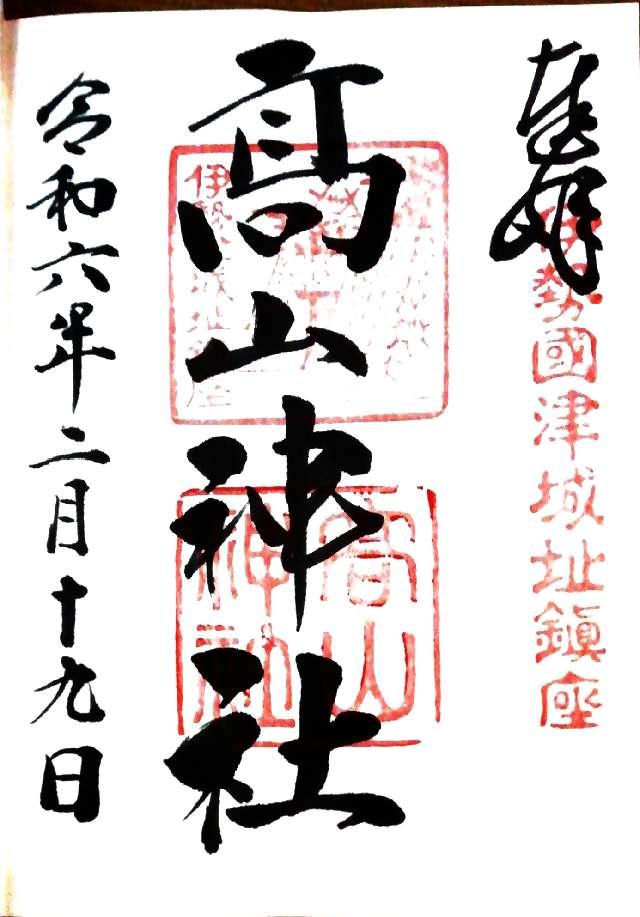 奉拝
伊勢國津城址鎮座
高山神社
高山
神社
令和六年二月十九日